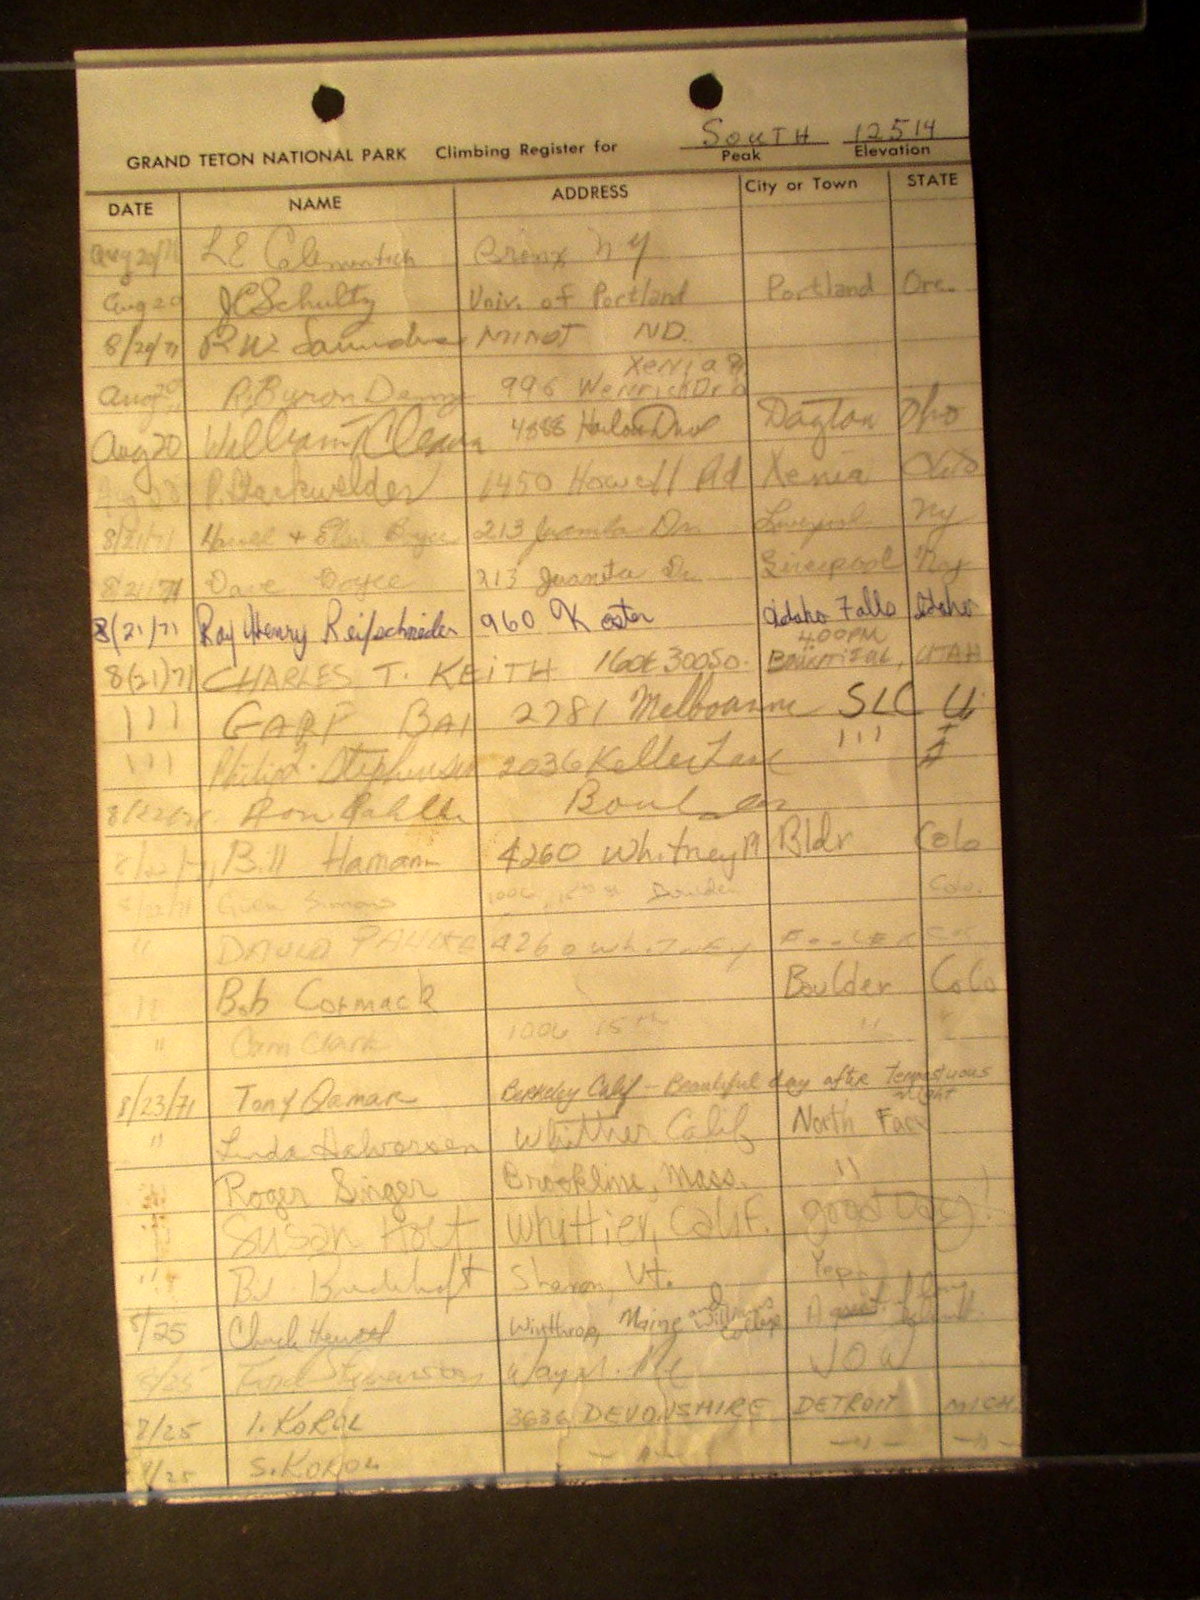 SOUTH 12514
GRAND TETON NATIONAL PARK Climbing Register for Peak Elevation
DATE NAME ADDRESS City or Town STATE
Aug 20/71 L E Bronx NY
Aug 20 JC Schultz Univ. of Portland Portland Ore.
8/20/71 R W Saunders MINOT ND.
Xenia
Aug 20 R. Byron 996 Wenrich Dr
Aug 20 William 4888 Harlou Drive Dayton Ohio
P. Harkwelder 1450 Howell Rd Xenia Ohio
8/21/71 + 213 Juanita Dr. Liverpool NY
8/21/71 Dave Boyce 213 Juanita Dr. Liverpool NY
8/21/71 Ray Henry Reifschneider 960 K ester Idaho Falls Idaho
4:00 PM
8/21/71 CHARLES T. KEITH 160E 3005O. Bountiful, UTAH
111 GARP BAI 2781 Melbourne SLC U
111 Philip Stephenson 2036 Keller Lane 111
8/22/71 Ron Boulder
8/22/71, Bill Hamann 4260 Whitney Pl Bldr Colo
8/22/71 Simons 1006, Boulder Colo.
" DAVID 4260 WHITNEY
" Bob Cormack Boulder Colo
" Clark 1006 15th " "
8/23/71 Tony Qamar Berkeley Calif - Beautiful day after Tempestuous night
" Linda Halvorsen Whittier Calif North Face
Roger Singer Brookline, Mass. "
Susan Holt Whittier, Calif. good Day!
" Sharon, Vt. Yep
8/25 Chuck Winthrop, Maine and Williams College A
8/25 Stevenson
8/25 I. KOROL 3636 DEVONSHIRE DETROIT MICH.
8/25 S. KOROL — " — — " — — " —